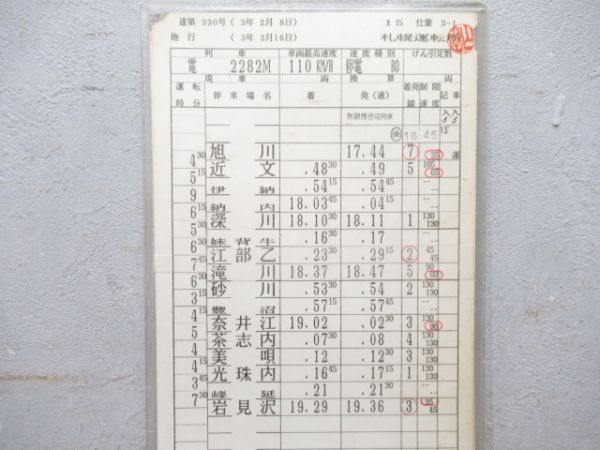 達第 330号 ( 3年 2月 8日)
15 仕業 3-1
施行 ( 3年 3月16日)
列車 車両最高速度 速度種別 けん引定数
電 2282M 110 KM/H 停電 B0
現車 両 換算 両
運転時分 停車場名 着 発(通) 着発線 制限速度 記事
無線機使用列車
16:45
旭川 17.44 7 35
4 30
近文 .48 30 .49 5 105 65
5 15
伊納 .54 15 .54 45
9
納内 18.03 45 .04 15
6 15
深川 18.10 30 18.11 1 130 130
5 30
妹背牛 .16 30 .17
6
江部乙 .23 30 .29 15 2 45 45
7 45
滝川 18.37 18.47 5 90 60
6 30
砂川 .53 30 .54 2 130 130
3 15
豊沼 .57 45 .57 15
4
奈井江 19.02 .02 30 3 130 90
5
茶志内 .07 30 .08 4 130 130
4
美唄 .12 .12 30 3 130 130
4 15
光珠内 .16 45 .17 15 1 130 130
3 45
峰延 .21 .21 30
7 30
岩見沢 19.29 19.36 3 35 45